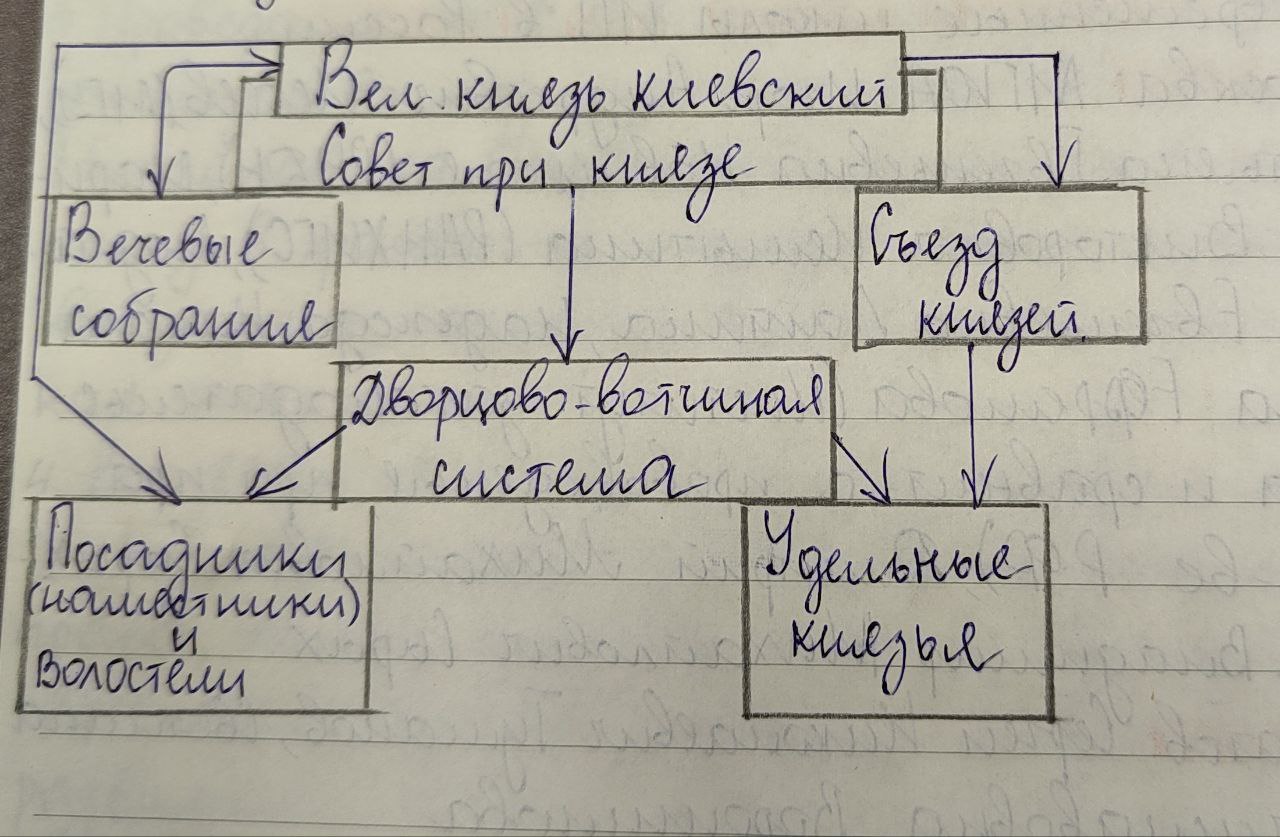 Вел. князь киевский
Совет при князе
Вечевые
собрания
Съезд
князей.
Дворцово-вотчиная
система
Посадники
(наместники)
и
Волостели
Удельные
князья